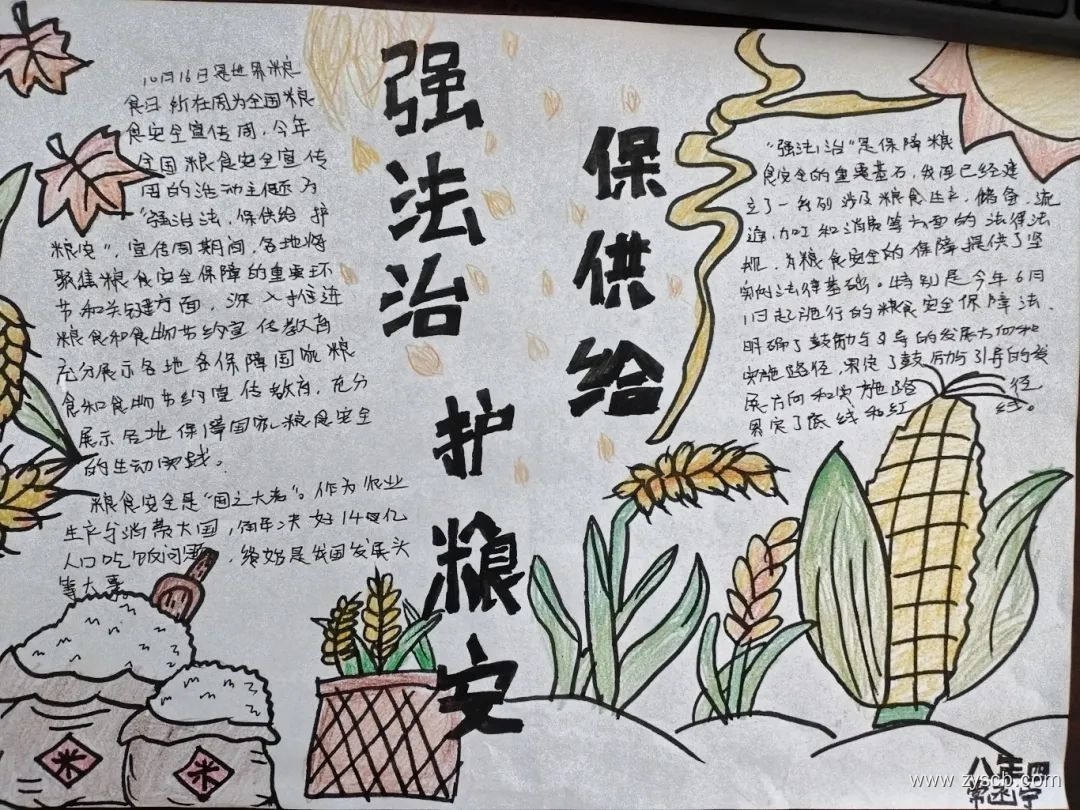 强法治
保供给
护粮安
10月16日是世界粮
食日所在周为全国粮
食安全宣传周,今年
全国粮食安全宣传
周的活动主题为
"强治法,保供给 护
粮安",宣传周期间,各地将
聚焦粮食安全保障的重要环
节和关键方面,深入推进
粮食和食物节约宣传教育
充分展示各地各保障国家粮
食和食物节约宣传教育,充分
展示各地保障国家粮食安全
的生动实践。
粮食安全是"国之大者"。作为农业
生产与消费大国,解决好14亿
人口吃饭问题,终始是我国发展头
等大事。
"强法治"是保障粮
食安全的重要基石,我国已经建
立了一系列涉及粮食生产、储备、流
通、加工和消费等方面的法律法
规,为粮食安全的保障提供了坚
实的法律基础。特别是今年6月
1日起施行的粮食安全保障法,
明确了鼓励与引导的发展方向和
实施路径,界定了鼓励与引导的发
展方向和实施路径
界定了底线和红线。
八年四
www.zyscb.com